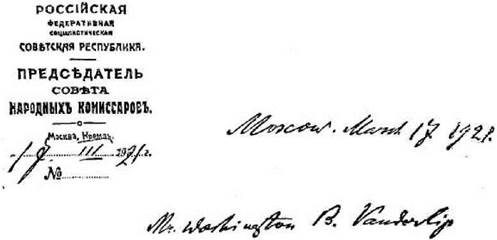 РОССІЙСКАЯ
ФЕДЕРАТИВНАЯ
СОЦІАЛИСТИЧЕСКАЯ
СОВѢТСКАЯ РЕСПУБЛИКА.
ПРЕДСѢДАТЕЛЬ
СОВѢТА
НАРОДНЫХЪ КОМИССАРОВЪ.
Москва, Кремль.
III 1921 г.
№
Moscow. March 17 1921.
Mr. Washington B. Vanderlip